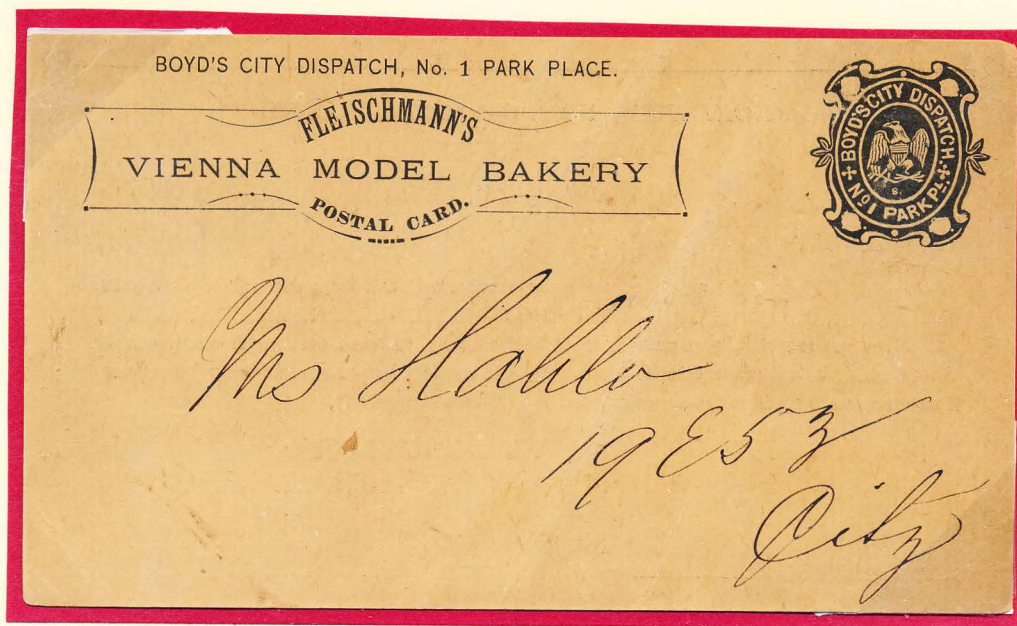 BOYD'S CITY DISPATCH, No. 1 PARK PLACE.
FLEISCHMANN'S
VIENNA MODEL BAKERY
POSTAL CARD.
BOYD'S CITY DISPATCH. + No 1 PARK PL. +
S.
Ms Hahlo
19 E 53
City